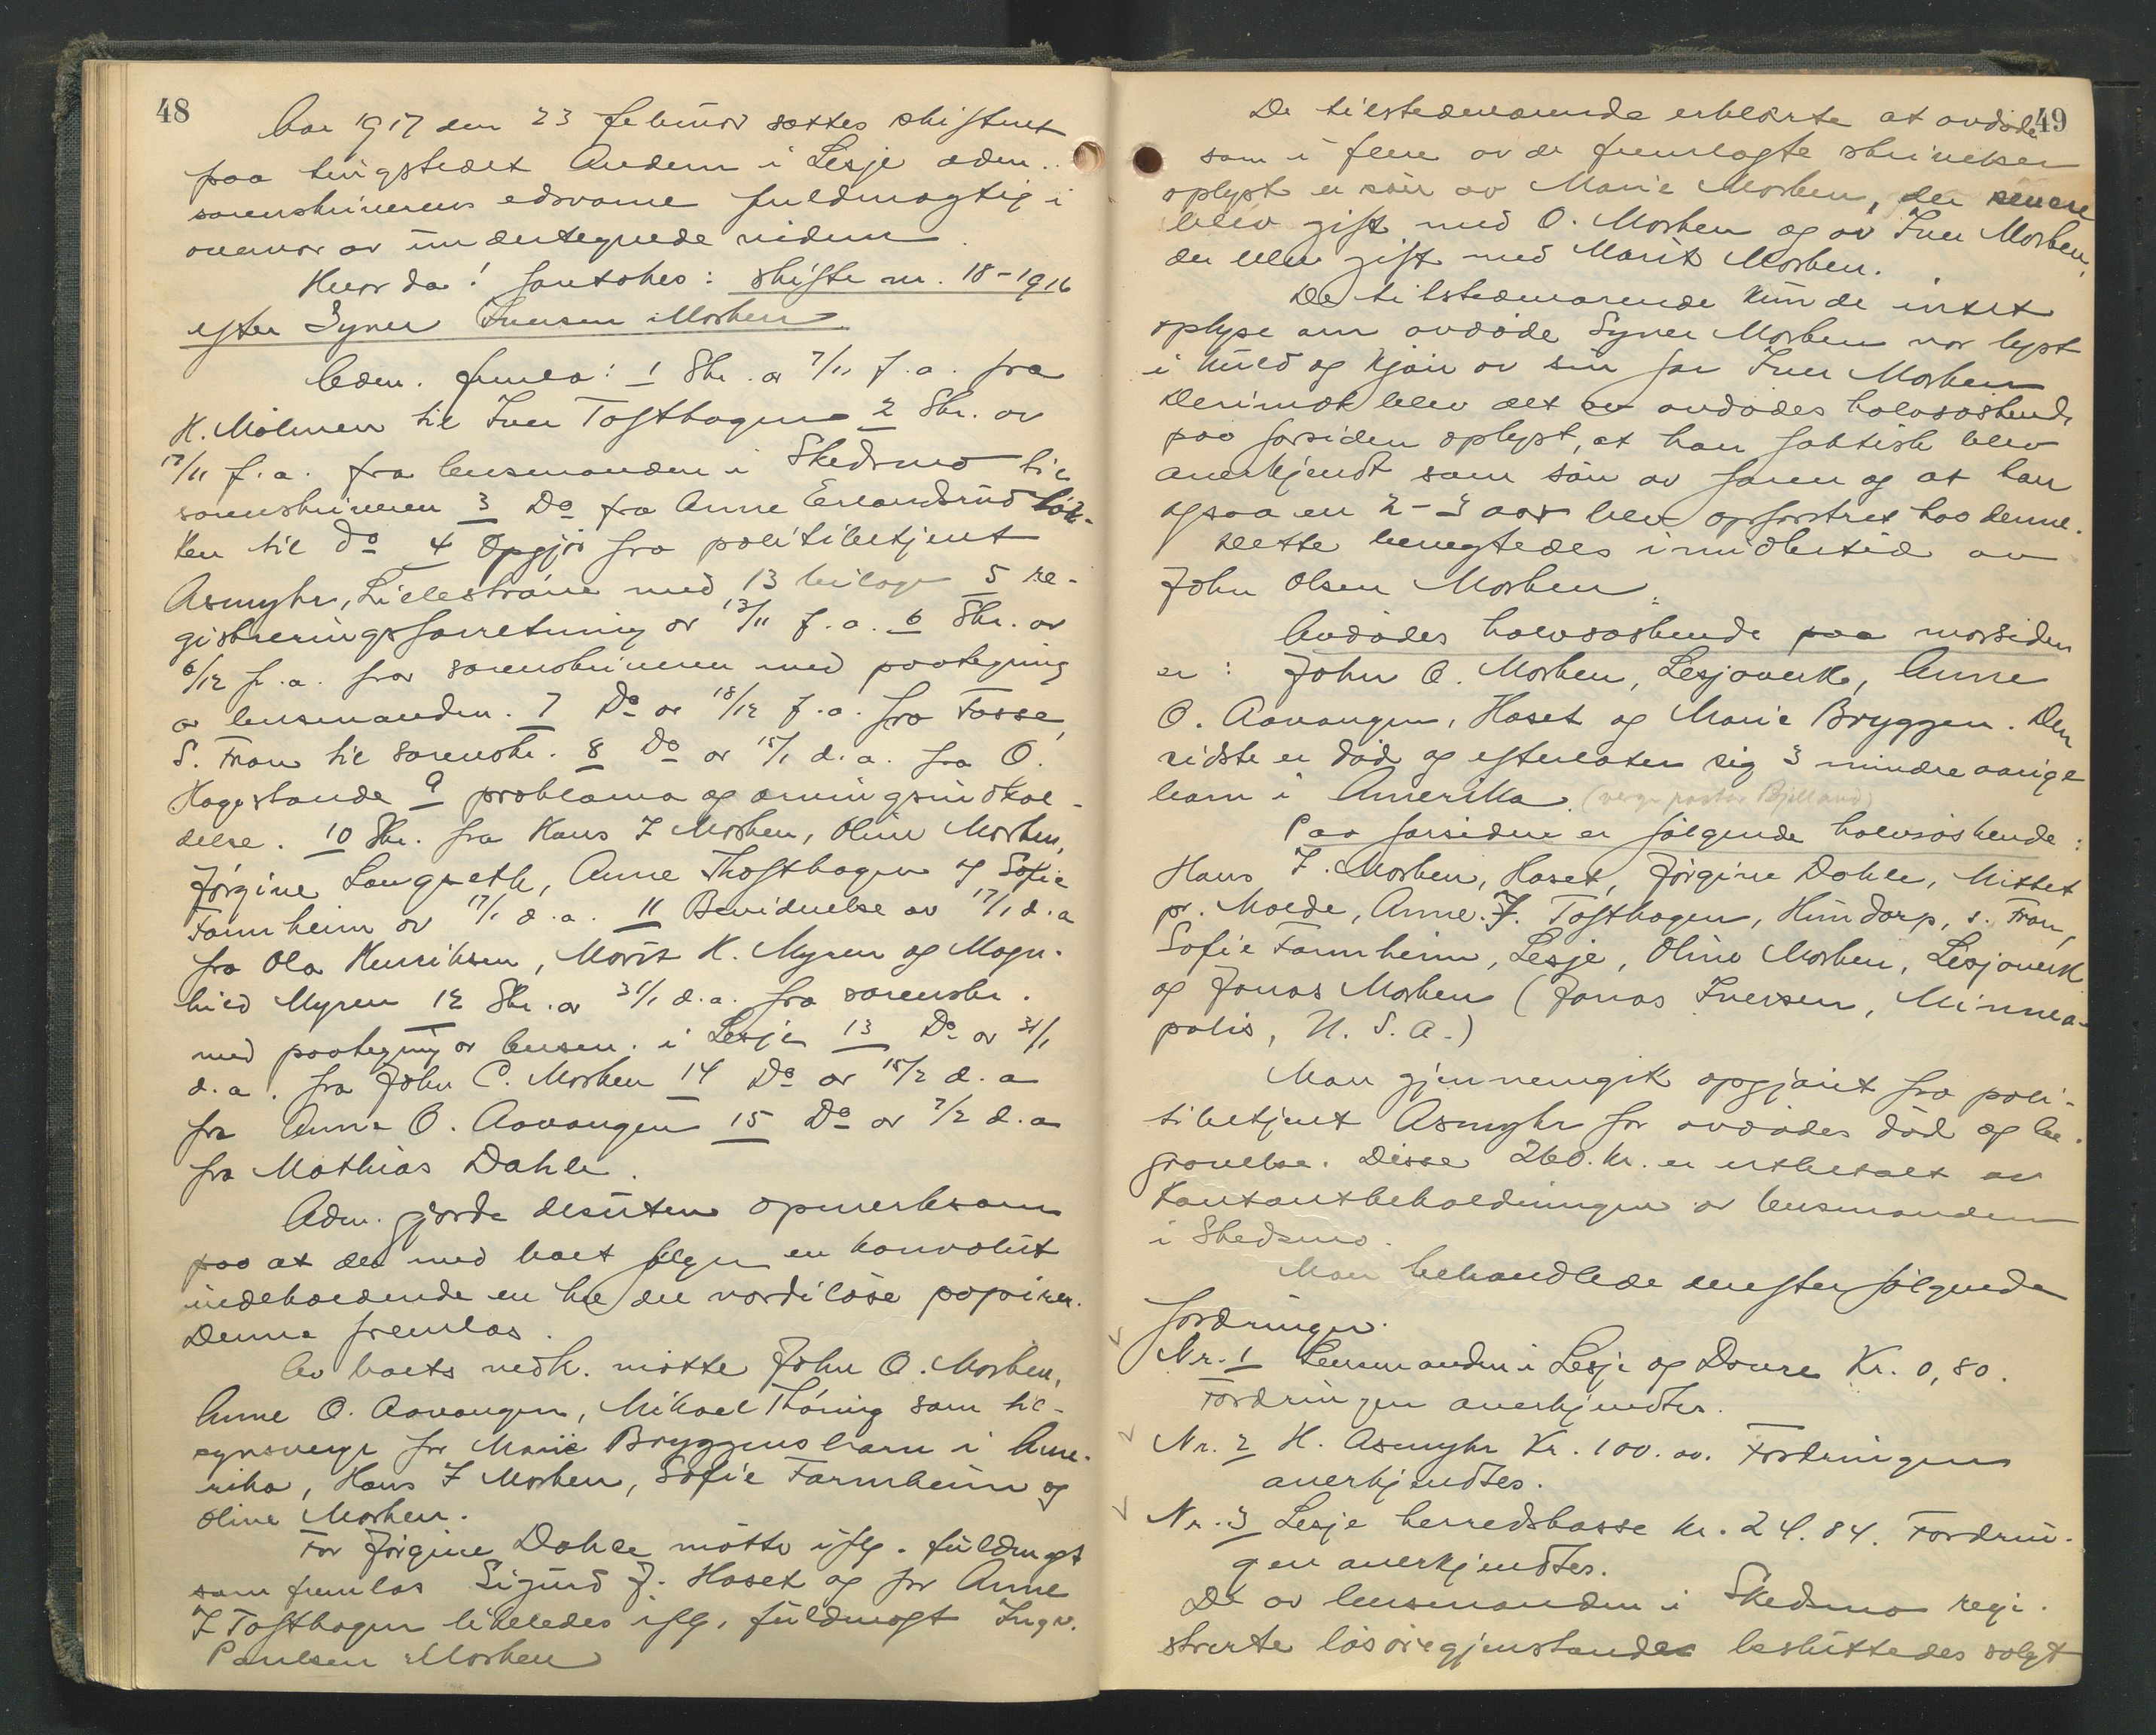 48
Aar 1917 den 23 februar sattes skifteret
paa tingstedet Andem i Lesje adm. .
sorenskriverens edsvorne fuldmægtig i
overvær av undertegnede vidner.
Hvorda! foretokes: skifte nr. 18-1916
efter Syver Iversen Morken
Adm. fremla: 1 Skr. av 7/11 f.a. fra
K. Mölmen til Iver Tofthagen 2 Skr. av
17/11 f.a. fra lensmanden i Skedsmo til
sorenskriveren 3 Do fra Anne Erlandsrud Løk-
ken til do 4 Opgjör fra politibetjent
Asmyhr, Lilleström med 13 bilage 5 re-
gistreringsforretning av 13/11 f.a. 6 Skr. av
6/12 f.a. fra sorenskriveren med paategning
av lensmanden. 7 Do av 18/12 f.a. fra Fosse,
S. Fron til sorenskr. 8 Do av 15/1 d.a. fra O.
Hagestande 9 proklama og arvingsindkal-
delse. 10 Skr. fra Hans I Morken, Oline Morken,
Jörgine Langseth, Anne Thofthagen og Sofie
Formheim av 17/1 d.a. 11 Bevidnelse av 17/1 d.a
fra Ola Henriksen, Marit K. Myren og Magn-
hild Myren 12 Skr. av 31/1 d.a. fra sorenskr.
med paategning av lensm. i Lesje 13 Do av 31/1
d.a. fra John O. Morken 14 Do av 15/2 d.a
fra Anne O. Aavangen 15 Do av 7/2 d.a
fra Mathias Dahle.
Adm. gjorde desuten opmerksom
paa at det med boet følger en konvolut
indeholdende en hel del værdiløse papirer.
Denne fremlaa.
Av boets vedk. mötte John O. Morken,
Anne O. Aavangen, Mikael Thöring som til-
synsverge for Marie Bryggens barn i Ame-
rika, Hans I Morken, Sofie Formheim og
Oline Morken.
For Jörgine Dahle mötte iflg. fuldmagt
som fremlaa Sigurd J. Haset og for Anne
I Tofthagen likeledes iflg. fuldmagt Ingv.
Paulsen Morken
49
De tilstedeværende erklærte at avdøde
som i flere av de fremlagte skrivelser
oplyst er sön av Marie Morken, der senere
blev gift med O. Morken og av Iver Morken,
der blev gift med Marit Morken.
De tilstedeværende kunde intet
oplyse om avdøde Syver Morken var lyst
i kuld og kjön av sin far Iver Morken
Derimot blev det av avdødes halvsøskende
paa farsiden oplyst, at han faktisk blev
anerkjendt som sön av faren og at han
ogsaa en 2-3 aar blev opfostret hos denne.
Dette benegtedes imidlertid av
John Olsen Morken.
Avdødes halvsøskende paa morsiden
er: John O. Morken, Lesjaverk, Anne
O. Aavangen, Haset og Marie Bryggen. Den
sidste er död og efterlater sig 3 mindreaarige
barn i Amerika. (verge pastor Bjelland)
Paa farsiden er følgende halvsøskende:
Hans I. Morken, Haset, Jörgine Dahle, Mittet
pr. Molde, Anne. I. Tofthagen, Hundorp, s. Fron,
Sofie Formheim, Lesje, Oline Morken, Lesjaverk
og Jonas Morken (Jonas Iversen, Minnea-
polis, U.S.A.)
Man gjennemgik opgjöret fra poli-
tibetjent Asmyhr for avdødes död og be-
gravelse. Disse 260. kr. er utbetalt av
kontantbeholdningen av lensmanden
i Skedsmo.
Man behandlede derefter følgende
fordringer.
Nr. 1 Lensmanden i Lesje og Dovre Kr. 0,80.
Fordringen anerkjendtes.
Nr. 2 H. Asmyhr Kr. 100.00. Fordringen
anerkjendtes.
Nr. 3 Lesje herredskasse kr. 24.84. Fordrin-
gen anerkjendtes.
De av lensmanden i Skedsmo regi-
strerte lösöregjenstande besluttedes solgt